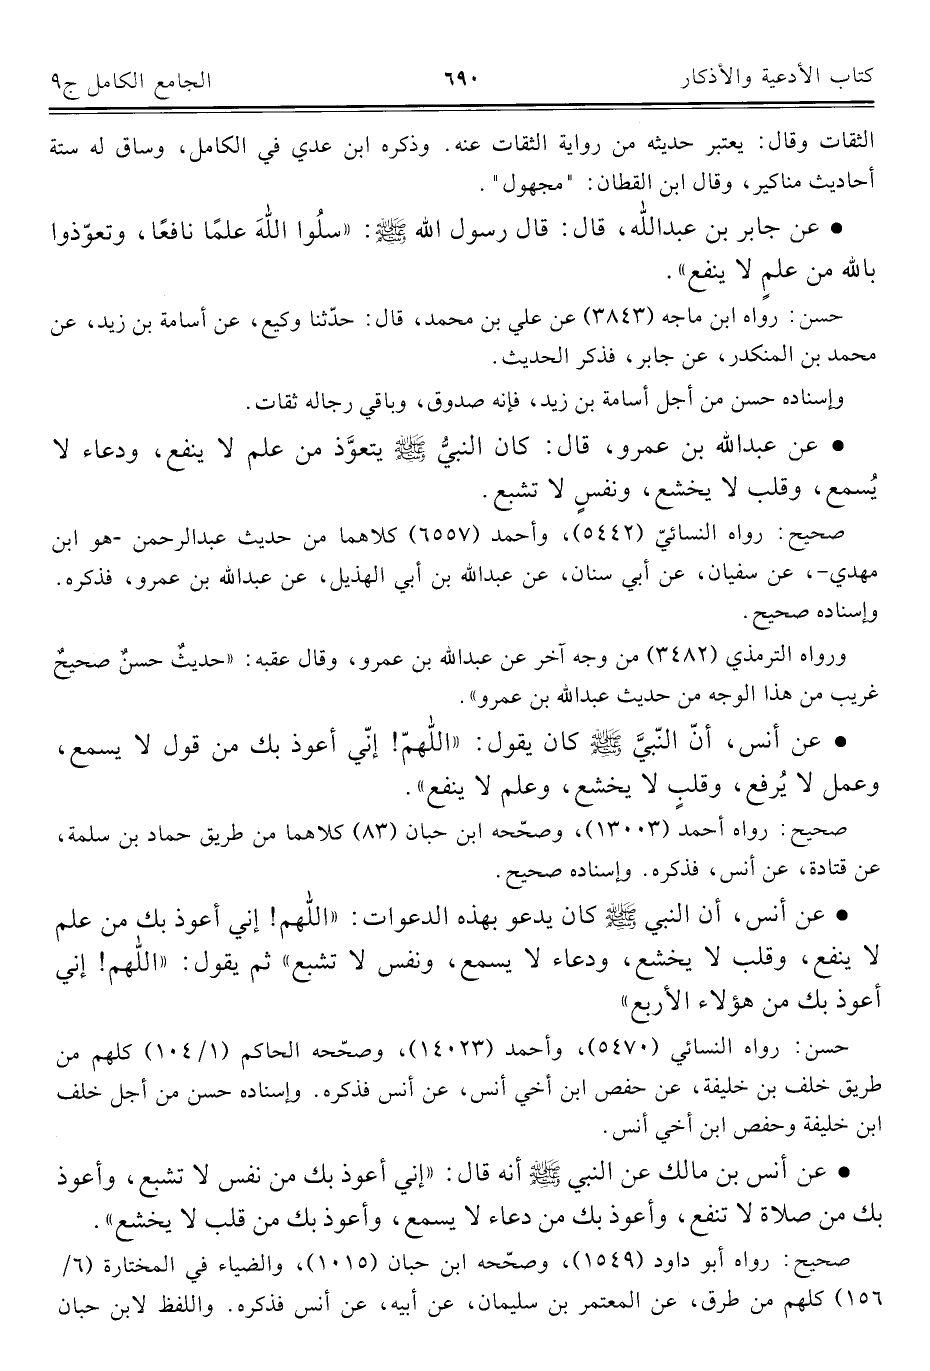 كتاب الأدعية والأذكار ٦٩٠ الجامع الكامل ج٩
الثقات وقال: يعتبر حديثه من رواية الثقات عنه. وذكره ابن عدي في الكامل، وساق له ستة
أحاديث مناكير، وقال ابن القطان: "مجهول".
• عن جابر بن عبدالله، قال: قال رسول الله ﷺ: «سلُوا اللَّهَ علمًا نافعًا، وتعوّذوا
بالله من علمٍ لا ينفع».
حسن: رواه ابن ماجه (٣٨٤٣) عن علي بن محمد، قال: حدّثنا وكيع، عن أسامة بن زيد، عن
محمد بن المنكدر، عن جابر، فذكر الحديث.
وإسناده حسن من أجل أسامة بن زيد، فإنه صدوق، وباقي رجاله ثقات.
• عن عبدالله بن عمرو، قال: كان النبيُّ ﷺ يتعوَّذ من علم لا ينفع، ودعاء لا
يُسمع، وقلب لا يخشع، ونفسٍ لا تشبع.
صحيح: رواه النسائيّ (٥٤٤٢)، وأحمد (٦٥٥٧) كلاهما من حديث عبدالرحمن -هو ابن
مهدي-، عن سفيان، عن أبي سنان، عن عبدالله بن أبي الهذيل، عن عبدالله بن عمرو، فذكره.
وإسناده صحيح.
ورواه الترمذي (٣٤٨٢) من وجه آخر عن عبدالله بن عمرو، وقال عقبه: «حديثٌ حسنٌ صحيحٌ
غريب من هذا الوجه من حديث عبدالله بن عمرو».
• عن أنس، أنّ النّبيَّ ﷺ كان يقول: «اللَّهمّ! إنّي أعوذ بك من قول لا يسمع،
وعمل لا يُرفع، وقلبٍ لا يخشع، وعلم لا ينفع».
صحيح: رواه أحمد (١٣٠٠٣)، وصحّحه ابن حبان (٨٣) كلاهما من طريق حماد بن سلمة،
عن قتادة، عن أنس، فذكره. وإسناده صحيح.
• عن أنس، أن النبي ﷺ كان يدعو بهذه الدعوات: «اللَّهم! إني أعوذ بك من علم
لا ينفع، وقلب لا يخشع، ودعاء لا يسمع، ونفس لا تشبع» ثم يقول: «اللَّهم! إني
أعوذ بك من هؤلاء الأربع»
حسن: رواه النسائي (٥٤٧٠)، وأحمد (١٤٠٢٣)، وصحّحه الحاكم (١/ ١٠٤) كلهم من
طريق خلف بن خليفة، عن حفص ابن أخي أنس، عن أنس فذكره. وإسناده حسن من أجل خلف
ابن خليفة وحفص ابن أخي أنس.
• عن أنس بن مالك عن النبي ﷺ أنه قال: «إني أعوذ بك من نفس لا تشبع، وأعوذ
بك من صلاة لا تنفع، وأعوذ بك من دعاء لا يسمع، وأعوذ بك من قلب لا يخشع».
صحيح: رواه أبو داود (١٥٤٩)، وصحّحه ابن حبان (١٠١٥)، والضياء في المختارة (٦/
١٥٦) كلهم من طرق، عن المعتمر بن سليمان، عن أبيه، عن أنس فذكره. واللفظ لابن حبان